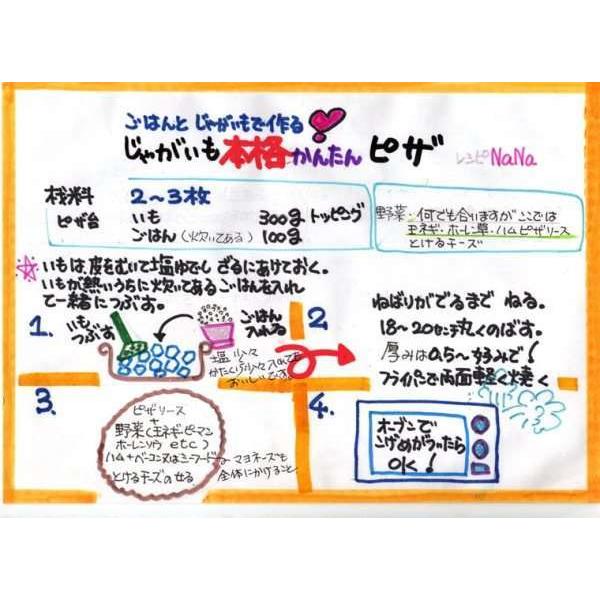 ごはんと じゃがいもで作る
じゃがいも 本格かんたん ピザ
レシピ NaNa
材料 2〜3枚
ピザ台 いも 300g トッピング
ごはん(炊いてある) 100g
野菜・何でも合いますがここでは
玉ネギ・ホーレン草・ハム ピザソース
とけるチーズ
いもは、皮をむいて塩ゆでし ざるにあけておく。
いもが熱いうちに 炊いてある ごはんを入れ
て一緒につぶす。
1. いも
つぶす
ごはん
入れる
塩 少々
かたくり少々 入れても
おいしいです。
2
ねばりがでるまで ねる。
18〜20センチ丸くのばす。
厚みは0.5〜好みで!
フライパンで両面軽く焼く
3.
ピザソース
+
野菜(玉ネギ・ピーマン
ホーレンソウ etc)
ハム+ベーコン又はシーフード
とけるチーズのせる
マヨネーズも
全体にかけること
4.
オーブンで
こげめがついたら
OK!